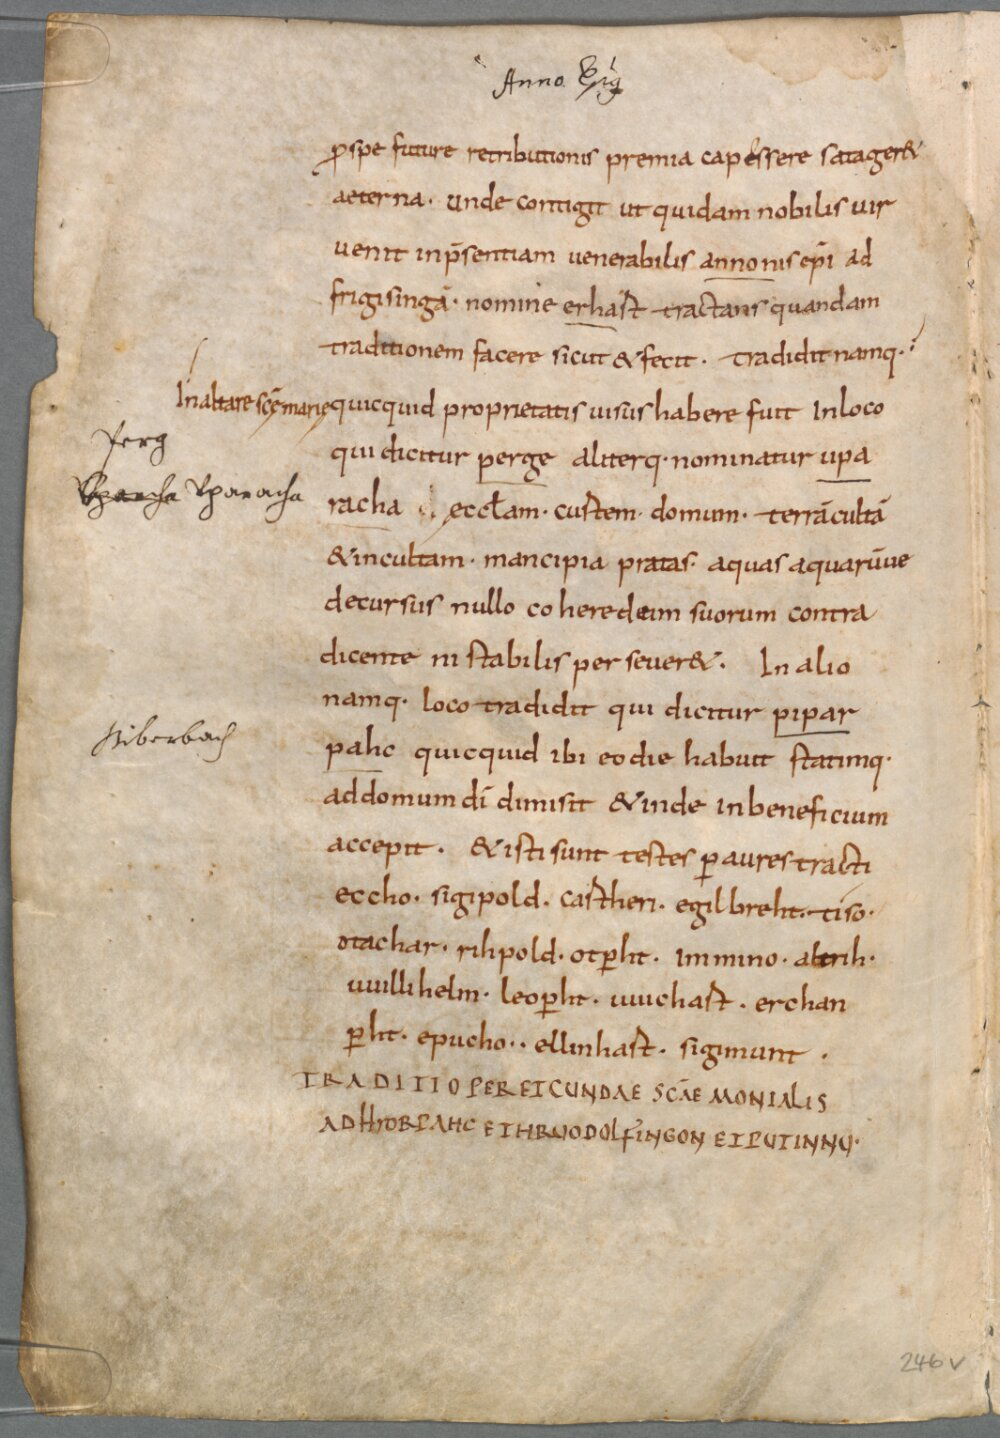 Anno
ꝑ spe future retributionis premia capessere satager&
aeterna. unde contigit ut quidam nobilis uir
uenit in p̄sentiam uenerabilis annonis ep̄i ad
frigisingā. nomine erhast tractans quandam
traditionem facere sicut & fecit. tradidit namq·
In altare scē marię quicquid proprietatis uisus habere fuit In loco
qui dicitur perge aliterq· nominatur upa
racha ęccłam. custem. domum. terrā cultā
& incultam. mancipia pratas. aquas aquarūue
decursus nullo coheredum suorum contra
dicente ni stabilis perseuer&. In alio
namq· loco tradidit qui dicitur pipar
pahc quicquid ibi eo die habuit statimq·
ad domum dī dimisit & inde in beneficium
accepit. & isti sunt testes ꝑ aures tracti
eccho. sigipold. castheri. egilbreht. tiso.
otachar. rihpold. otꝑht. immino. altrih.
uuillihelm. leoꝑht. uuichast. erchan
ꝑht. epucho.. ellinhast. sigimunt.
TRADITIO PEREICUNDAE SCĀE MONIALIS
AD HRORPAHC ET HRUODOLFINGON ET PUTINNU.
Perg
Vparacha
Biberbach
246v